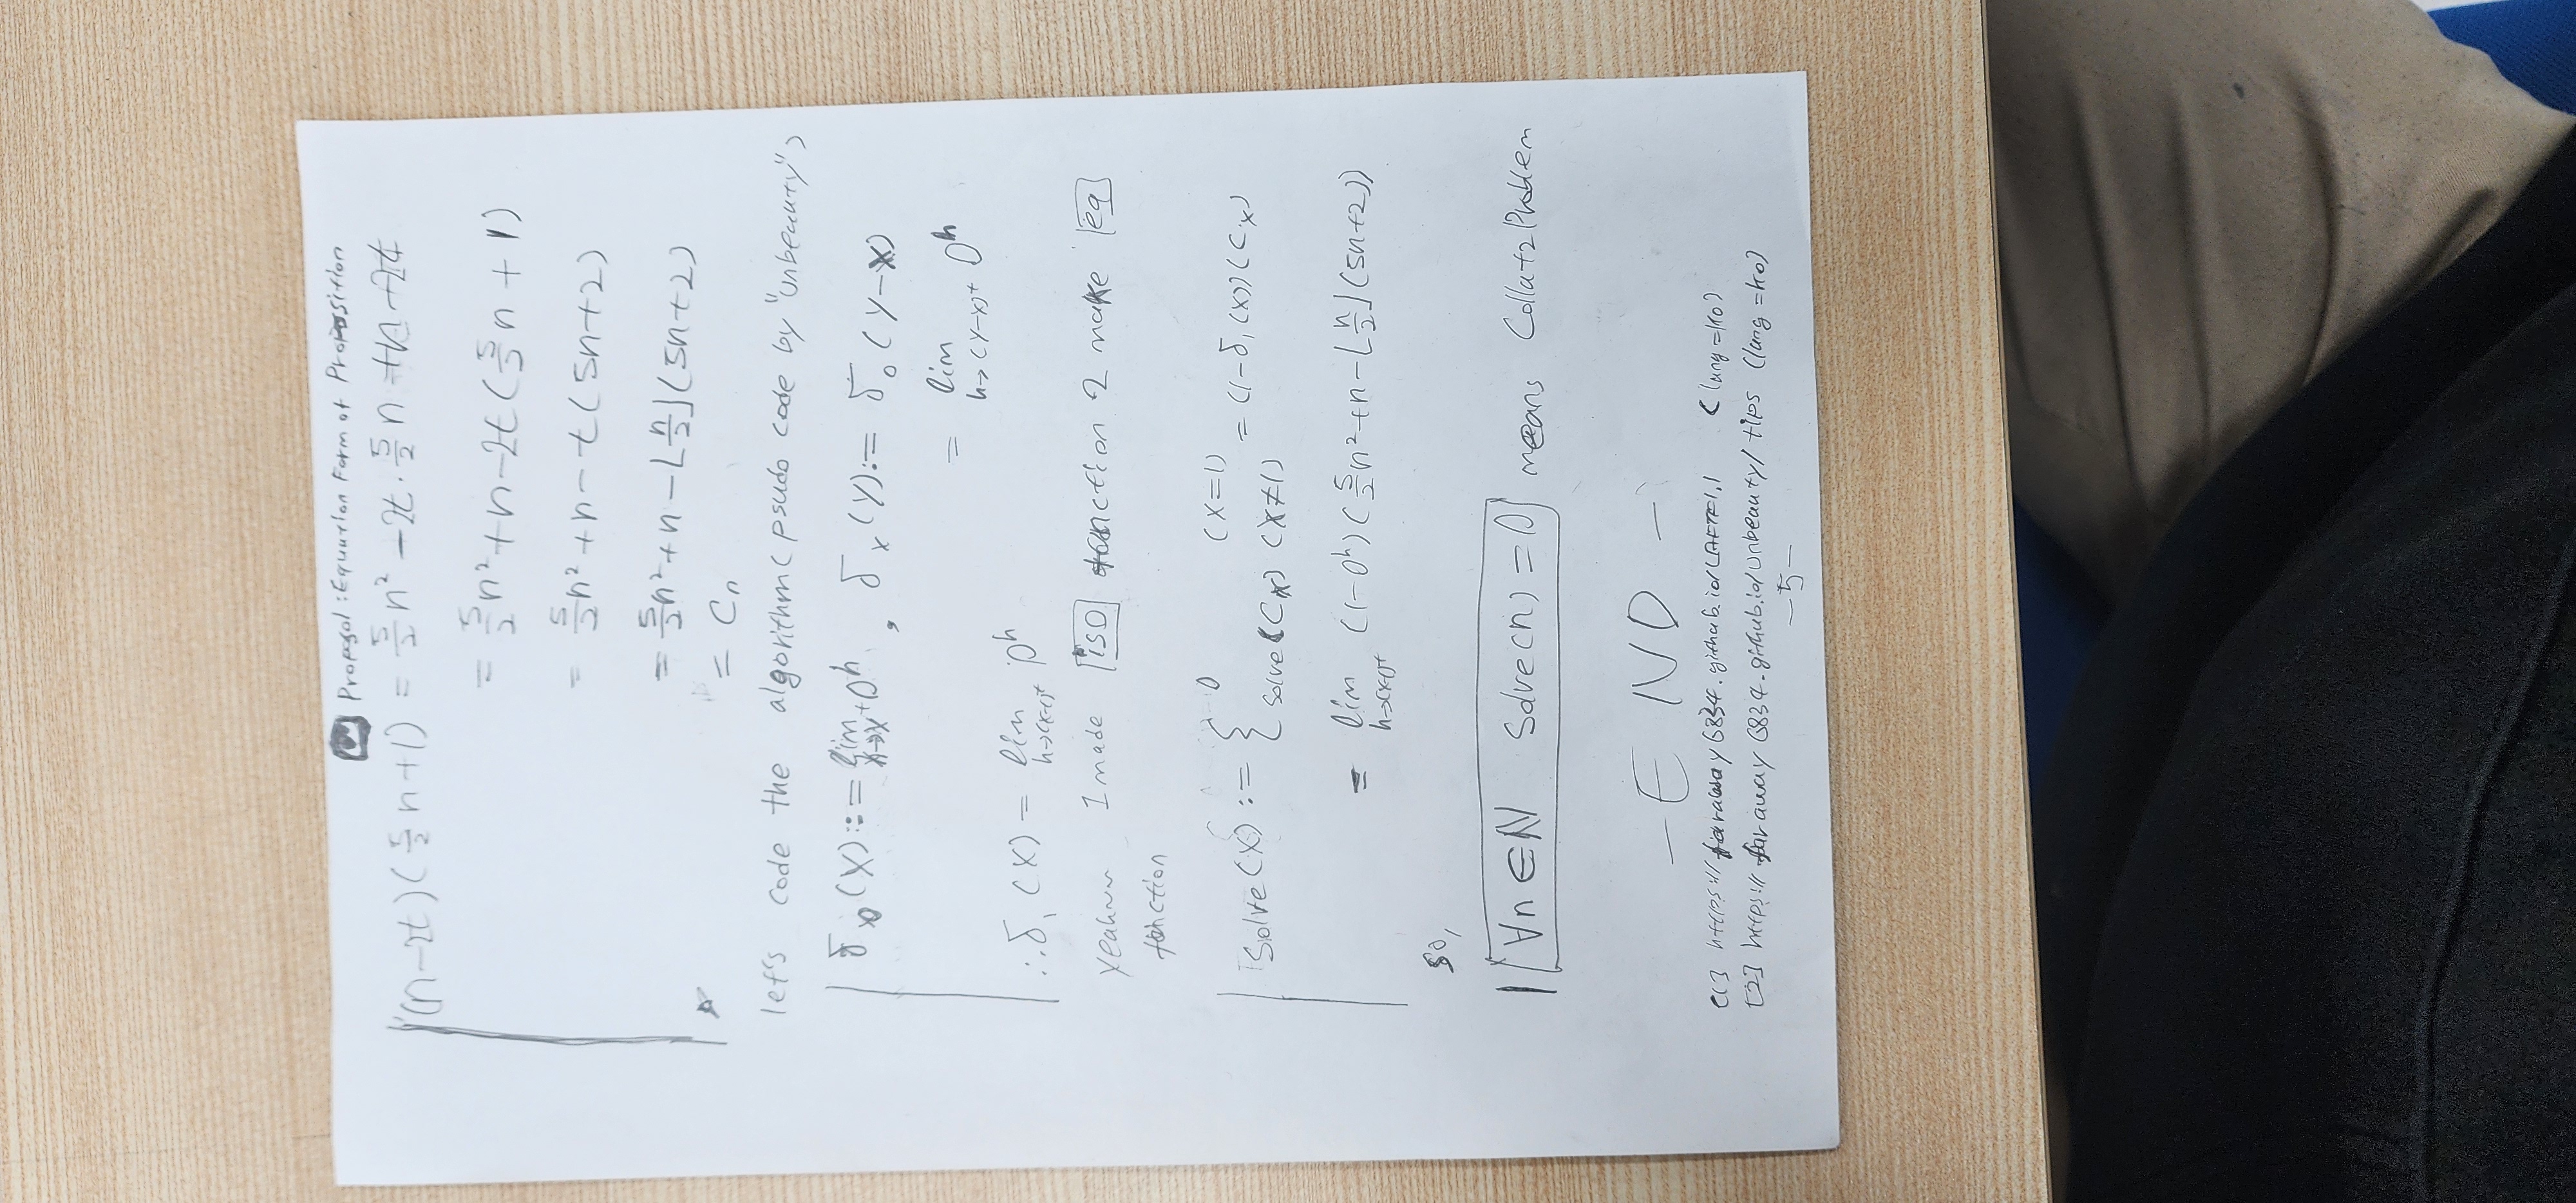 Proposal : Equation Form of Proposition
(n-2t)(5/2 n+1) = 5/2 n² - 2t · 5/2 n + n - 2t
= 5/2 n² + n - 2t (5/2 n + 1)
= 5/2 n² + n - t (5n+2)
= 5/2 n² + n - ⌊n/2⌋ (5n+2)
= Cₙ
let's code the algorithm ( psudo code by "unbeauty" )
δ₀(x) := lim h→x⁺ 0ʰ , δₓ(y) := δ₀(y-x)
= lim h→(y-x)⁺ 0ʰ
∴ δ₁(x) = lim h→(x-1)⁺ 0ʰ
I made iso function 2 make eq
function
Solve(x) := { 0 (x=1)
solve(Cₓ) (x≠1) = (1-δ₁(x))(Cₓ)
= lim h→(x-1)⁺ (1-0ʰ)(5/2 n²+n-⌊n/2⌋(5n+2))
so,
∀n∈ℕ Solve(n) = 0 means Collatz Problem
- E N D -
[1] (lang=ko)
[2] https://faraway6834.github.io/unbeauty/tips (lang=ko)
-5-